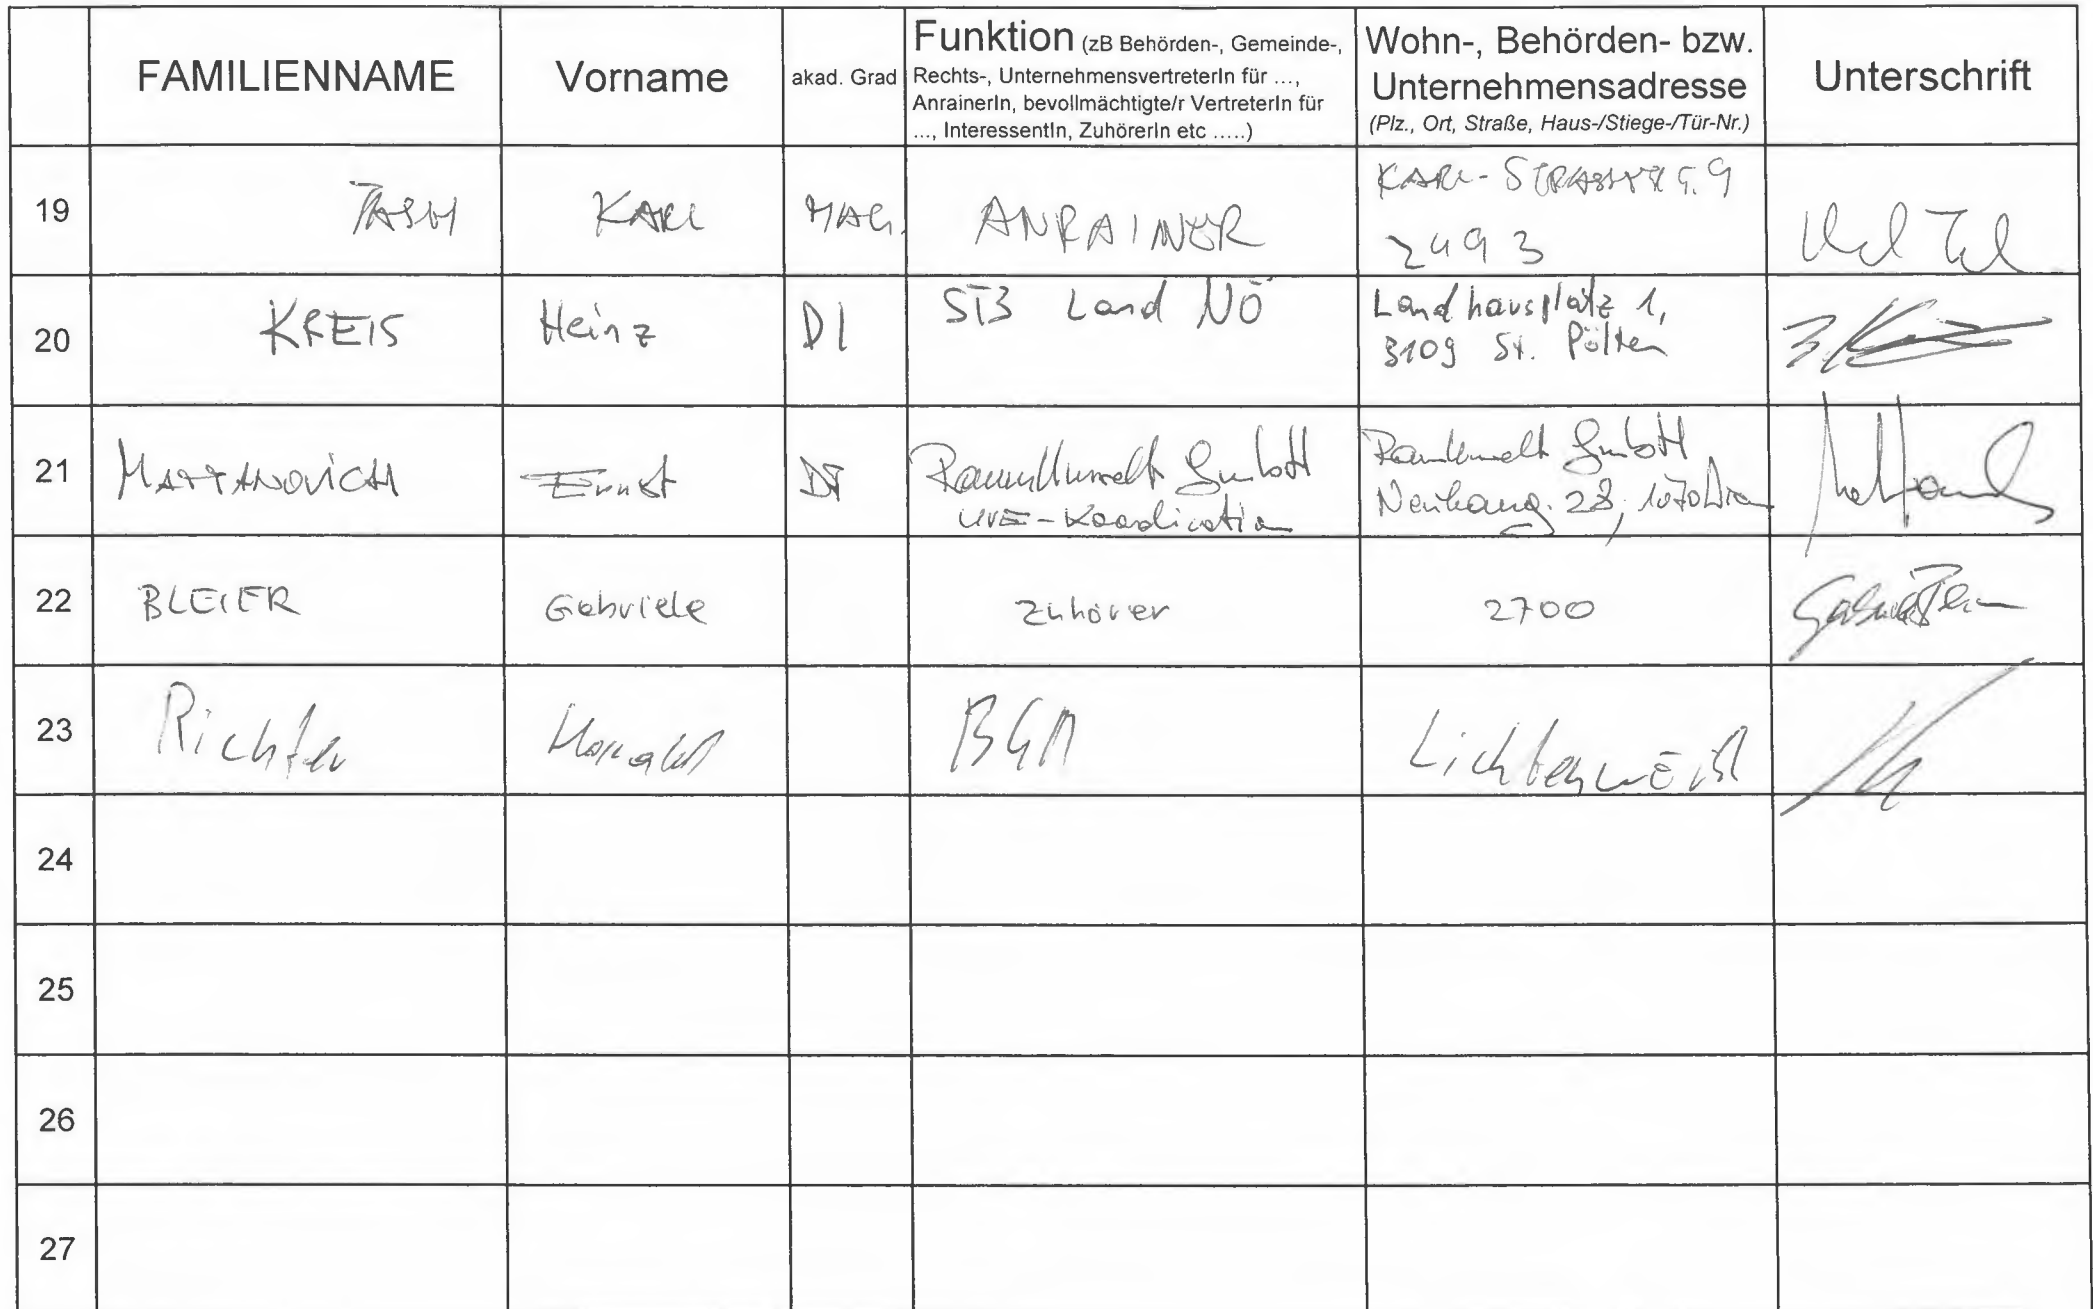 FAMILIENNAME
Vorname
akad. Grad
Funktion (zB Behörden-, Gemeinde-,
Rechts-, UnternehmensvertreterIn für ...,
AnrainerIn, bevollmächtigte/r VertreterIn für
..., InteressentIn, ZuhörerIn etc .....)
Wohn-, Behörden- bzw.
Unternehmensadresse
(Plz., Ort, Straße, Haus-/Stiege-/Tür-Nr.)
Unterschrift
19
KARL
MAG.
ANRAINER
KARL- G. 9
2493
20
KREIS
Heinz
DI
ST3 Land NÖ
Landhausplatz 1,
3109 St. Pölten
21
MATTANOVICH
Ernst
DI
RaumUmwelt GmbH
UVE-Koordination
RaumUmwelt GmbH,
Neubaug. 28, 1070 Wien
22
BLEIER
Gabriele
Zuhörer
2700
23
Richter
Harald
BGM
Lichtenwörth
24
25
26
27